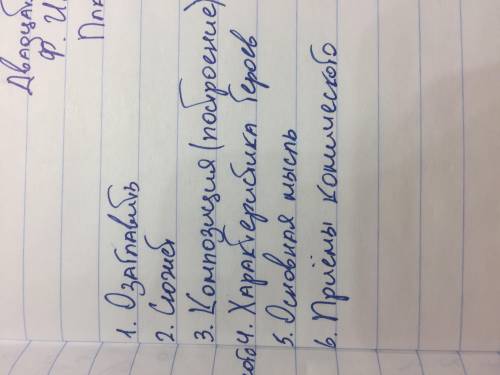 Ф. И.
1. Озаглавить
2. Сюжет
3. Композиция (построение)
4. Характеристика героев
5. Основная мысль
6. Приёмы комического